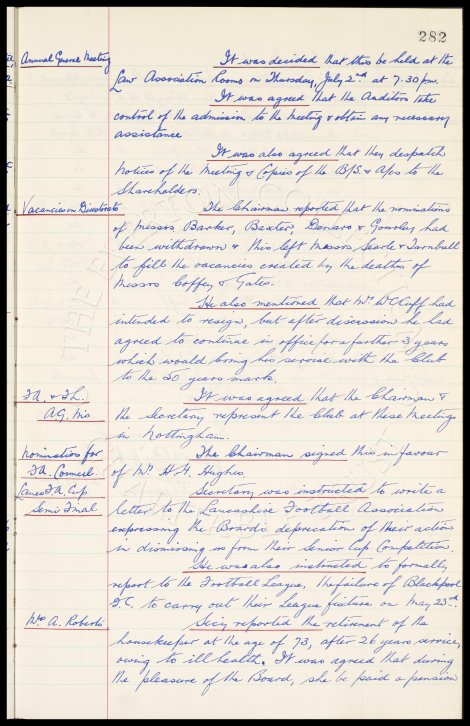 282
Annual General Meeting It was decided that this be held at the
Law Association Rooms on Thursday, July 2nd at 7.30pm.
It was agreed that the Auditors take
control of the admission to the meeting & obtain any necessary
assistance
It was also agreed that they despatch
Notices of the Meeting & Copies of the B/S & A/cs to the
Shareholders.
Vacancies on Directorate The Chairman reported that the nominations
of Messrs Barker, Baxter, Denaro & Gourley had
been withdrawn & this left Messrs Searle & Turnbull
to fill the vacancies created by the deaths of
Messrs Coffey & Yates.
He also mentioned that Mr W C Cuff had
intended to resign, but after discussion he had
agreed to continue in office for a further 3 years
which would bring his service with the Club
to the 50 years mark.
F.A. & F.L. It was agreed that the Chairman &
A.G. M's the Secretary represent the Club at these Meetings
in Nottingham.
Nomination for The Chairman signed this in favour
F.A. Council of Mr H. Hughes
Lancs F.A. Cup Secretary was instructed to write a
Semi Final letter to the Lancashire Football Association
expressing the Board's deprecation of their actions
in dismissing us from their Senior Cup Competition.
He was also instructed to formally
report to the Football League, the failure of Blackpool
F.C. to carry out their League fixture on May 23rd.
Mrs A. Roberts. Secy reported the retirement of the
housekeeper at the age of 73, after 26 years service,
owing to ill health. It was agreed that during
the pleasure of the Board, she be paid a pension